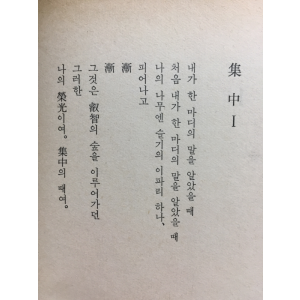 集中 I
내가 한 마디의 말을 알았을 때
처음 내가 한 마디의 말을 알았을 때
나의 나무엔 슬기의 이파리 하나,
피어나고
漸
漸
그것은 叡智의 숲을 이루어가던
그러한
나의 榮光이여. 集中의 때여.